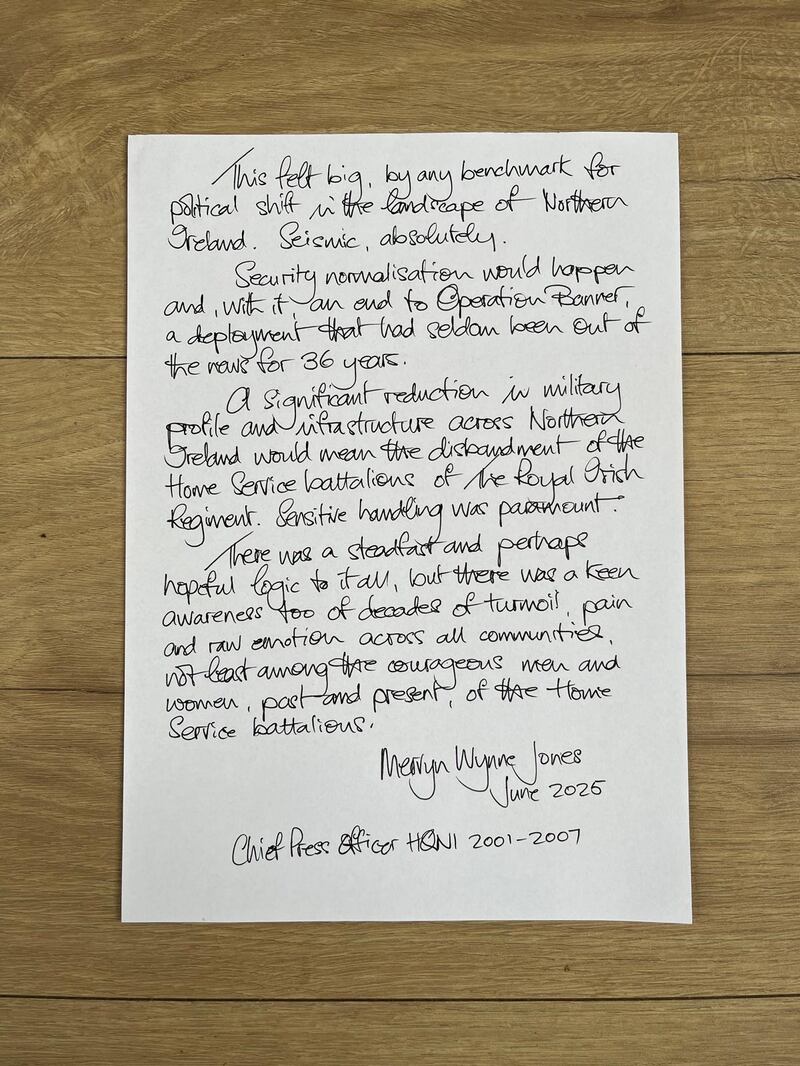 This felt big, by any benchmark for
political shift in the landscape of Northern
Ireland. Seismic, absolutely.
Security normalisation would happen
and, with it, an end to Operation Banner,
a deployment that had seldom been out of
the news for 36 years.
A significant reduction in military
profile and infrastructure across Northern
Ireland would mean the disbandment of the
Home Service battalions of The Royal Irish
Regiment. Sensitive handling was paramount.
There was a steadfast and perhaps
hopeful logic to it all, but there was a keen
awareness too of decades of turmoil, pain
and raw emotion across all communities,
not least among the courageous men and
women, past and present, of the Home
Service battalions.
Mervyn Wynne Jones
June 2025
Chief Press Officer HQNI 2001-2007